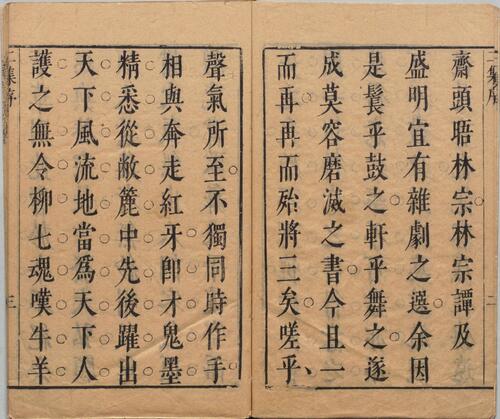 齋頭晤林宗林宗譚及
盛明宜有雜劇之選余因
是鬂乎鼓之軒乎舞之遂
成莫容磨滅之書今且一
而再再而殆將三矣嗟乎
二
聲氣所至不獨同時作手
相與奔走紅牙卽才鬼墨
精悉從敝簏中先後躍出
天下風流地當爲天下人
護之無令柳七魂嘆牛羊
二集序
三